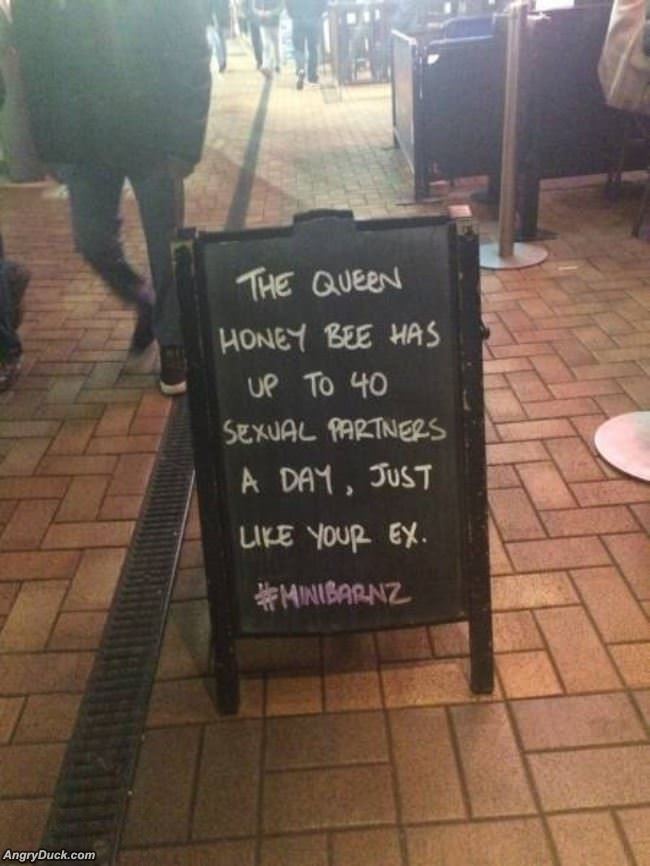 THE QUEEN
HONEY BEE HAS
UP TO 40
SEXUAL PARTNERS
A DAY, JUST
LIKE YOUR EX.
#MINIBARNZ
AngryDuck.com